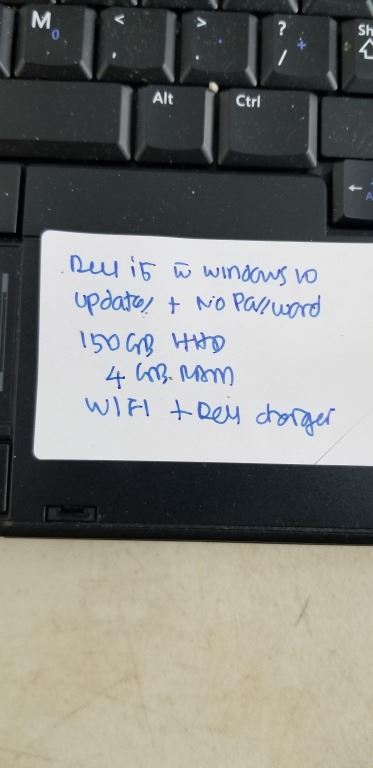 M
0
<
,
>
.
?
/
+
Sh
Alt
Ctrl
←
Dell i5 w̅ windows 10
updates + No Password
150 GB HHD
4 GB. RAM
WIFI + Dell charger